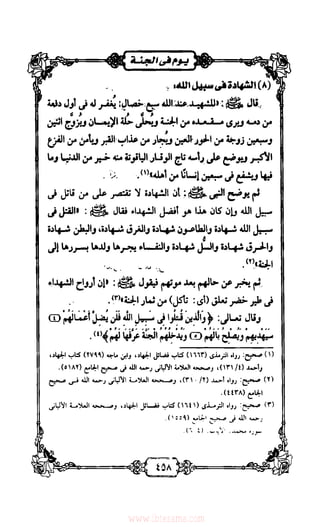 يوم فى الجنة
(٨) الشهادة فى سبيل الله:
قال ﷺ: «للشهيد عند الله سبع خصال: يُغفر له فى أول دفعة
من دمه ويرى مقعده من الجنة ويُحلَّى حُلة الإيمان ويُزوَّج اثنتين
وسبعين زوجة من الحور العين ويُجار من عذاب القبر ويأمن من الفزع
الأكبر ويوضع على رأسه تاج الوقار الياقوتة منه خير من الدنيا وما
فيها ويشفع فى سبعين إنسانًا من أهله»(١).
ثم يوضح النبى ﷺ: أن الشهادة لا تقتصر على من قاتل فى
سبيل الله وإن كان هذا هو أفضل الشهداء فقال ﷺ: «القتل فى
سبيل الله شهادة والطاعون شهادة والغرق شهادة، والبطن شهادة
والحرق شهادة والسُّل شهادة والنفساء يجرها ولدها بسررها إلى
الجنة»(٢).
ثم يخبر عن حالهم بعد موتهم فيقول ﷺ: «إن أرواح الشهداء
فى طير خضر تعلق (أى: تأكل) من ثمار الجنة»(٣).
وقال تعالى: ﴿وَالَّذِينَ قُتِلُوا فِي سَبِيلِ اللَّهِ فَلَن يُضِلَّ أَعْمَالَهُمْ ④
سَيَهْدِيهِمْ وَيُصْلِحُ بَالَهُمْ ⑤ وَيُدْخِلُهُمُ الْجَنَّةَ عَرَّفَهَا لَهُمْ﴾(٤).
(١) صحيح: رواه الترمذى (١٦٦٣) كتاب فضائل الجهاد، وابن ماجه (٢٧٩٩) كتاب الجهاد،
وأحمد (٤/ ١٣١)، وصححه العلامة الألبانى رحمه الله فى صحيح الجامع (٥١٨٢).
(٢) صحيح: رواه أحمد (٢/ ٣١٠)، وصححه العلامة الألبانى رحمه الله فى صحيح
الجامع (٤٤٣٨).
(٣) صحيح: رواه الترمذى (١٦٤١) كتاب فضائل الجهاد، وصححه العلامة الألبانى
رحمه الله فى صحيح الجامع (١٥٥٩).
سورة محمد: الآيات:
٤٥٨